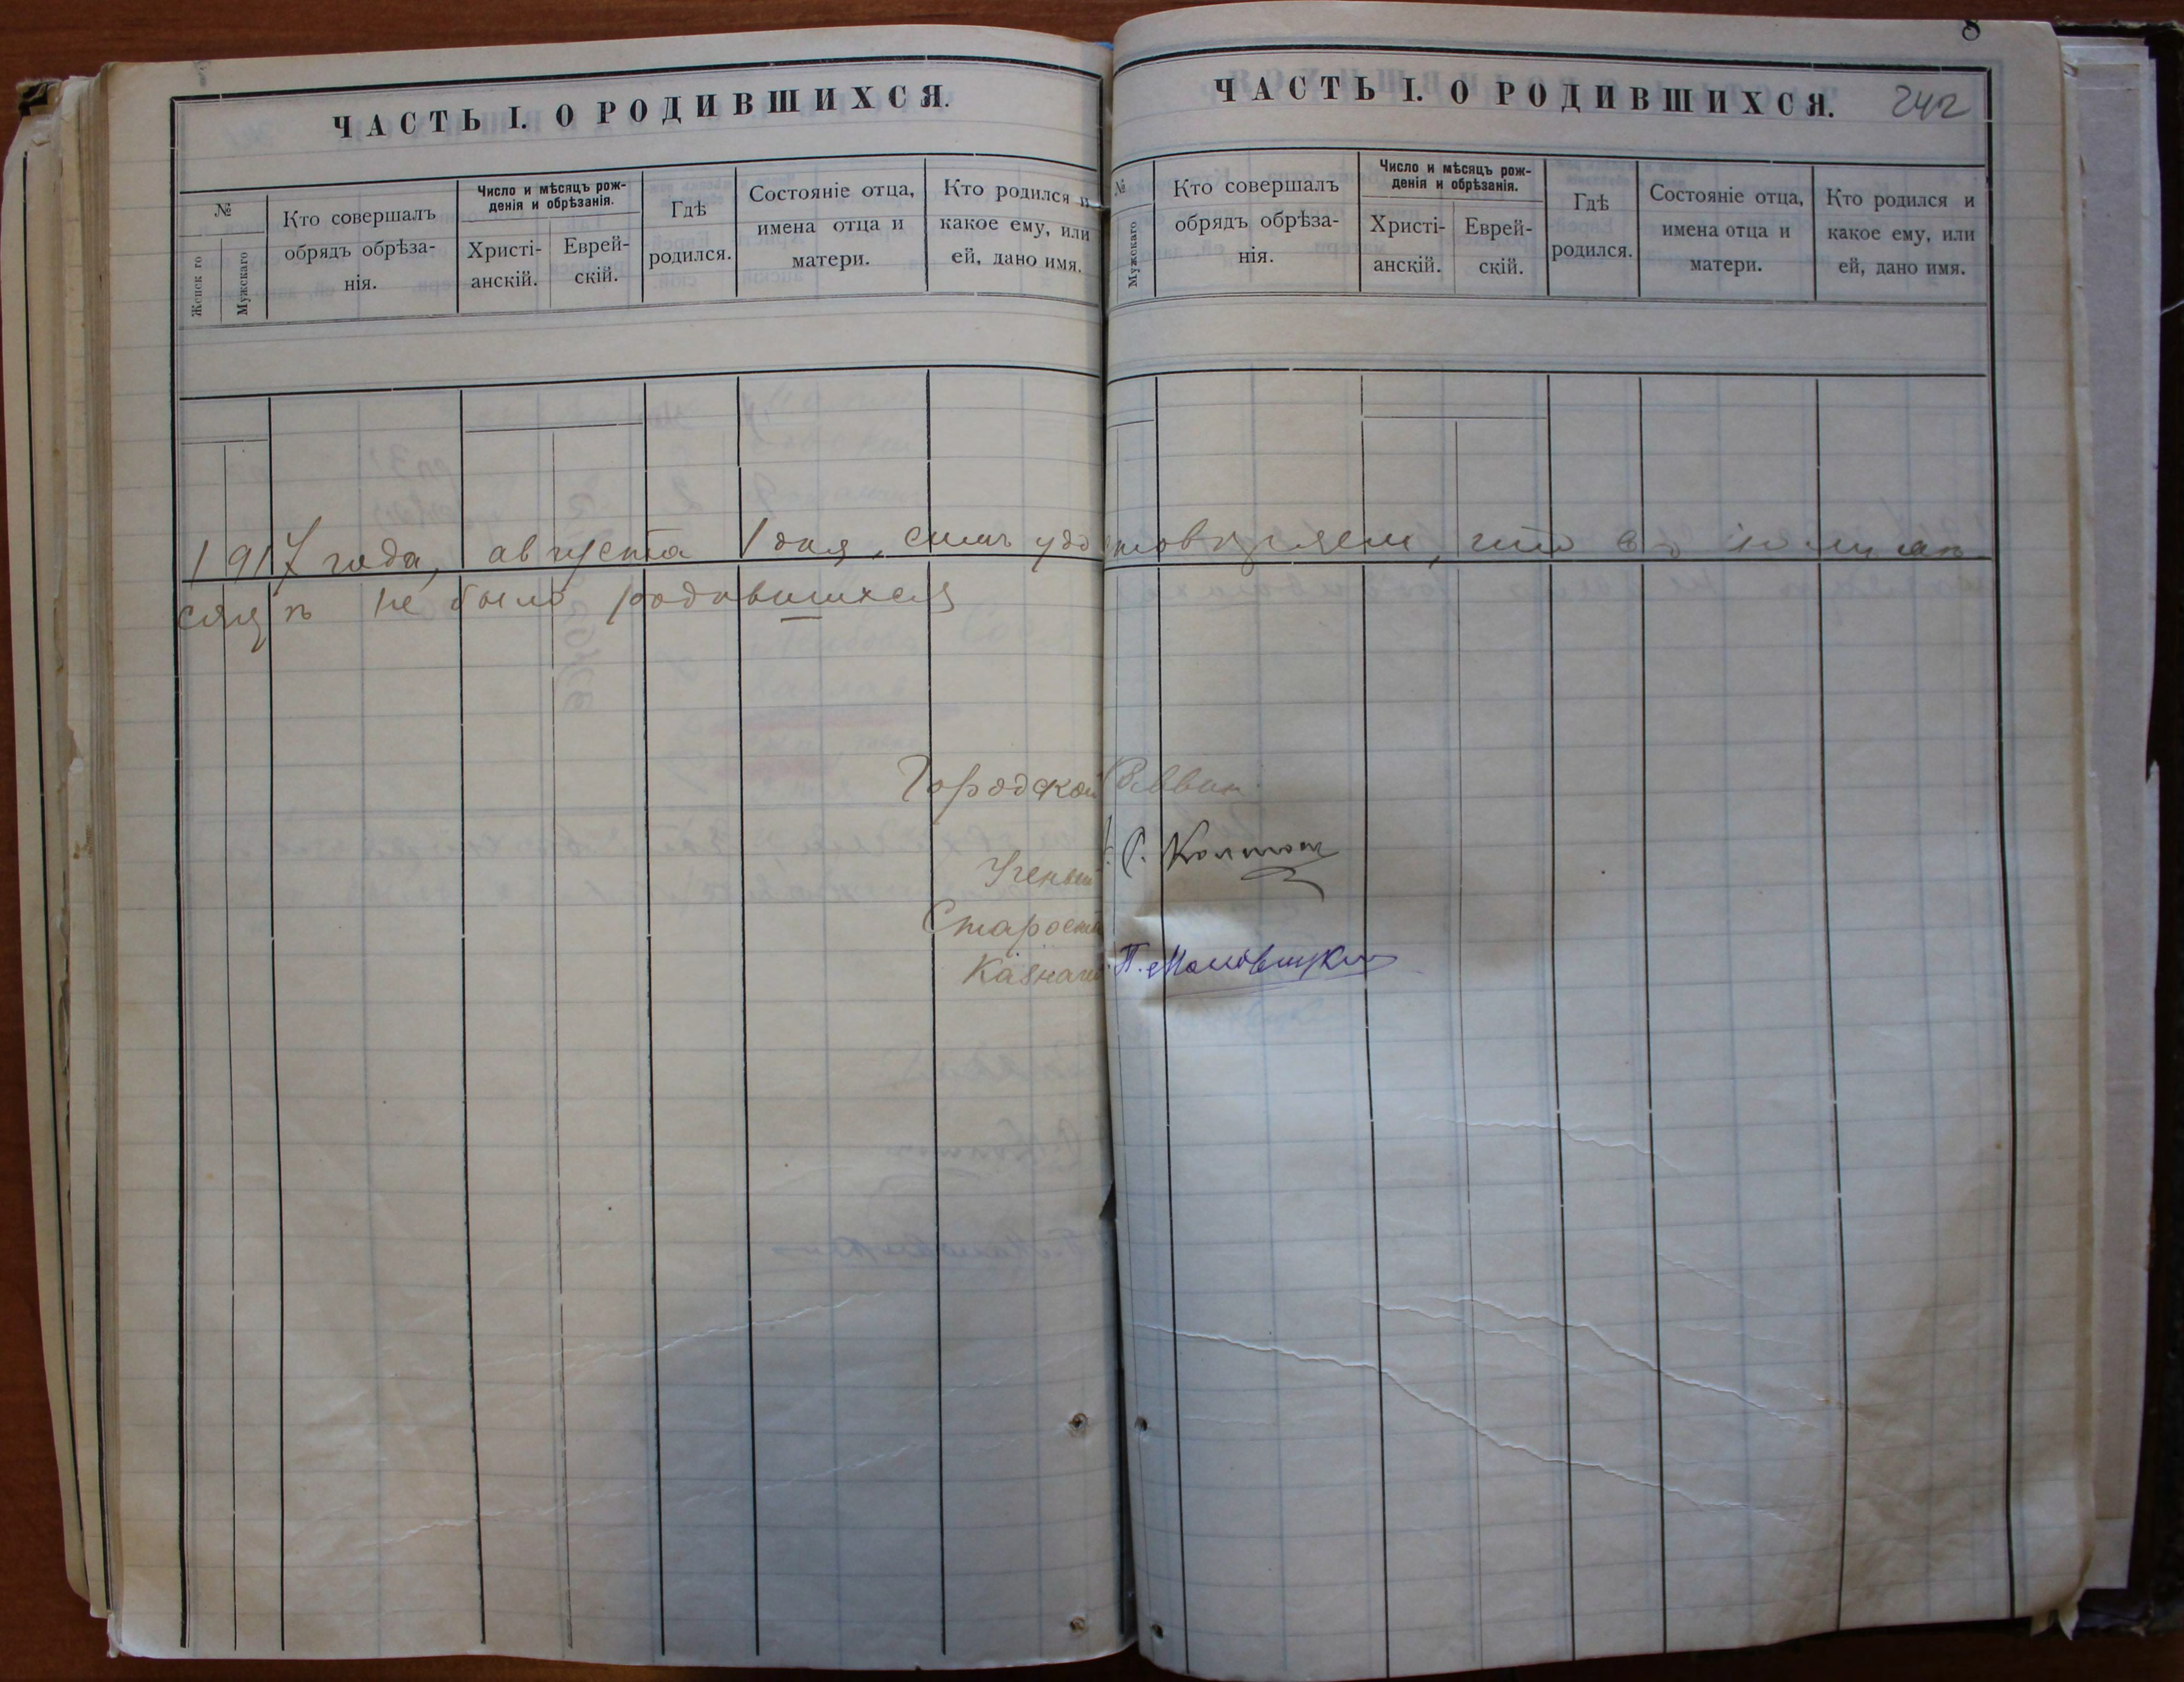 ЧАСТЬ I. О РОДИВШИХСЯ.
№
Женск го
Мужскаго
Кто совершалъ
обрядъ обрѣза-
нія.
Число и мѣсяцъ рож-
денія и обрѣзанія.
Христі-
анскій.
Еврей-
скій.
Гдѣ
родился.
Состояніе отца,
имена отца и
матери.
Кто родился и
какое ему, или
ей, дано имя.
ЧАСТЬ I. О РОДИВШИХСЯ.
242
8
№
Мужскаго
Кто совершалъ
обрядъ обрѣза-
нія.
Число и мѣсяцъ рож-
денія и обрѣзанія.
Христі-
анскій.
Еврей-
скій.
Гдѣ
родился.
Состояніе отца,
имена отца и
матери.
Кто родился и
какое ему, или
ей, дано имя.
1917 года, августа 1 дня, симъ удостовѣряем, что въ іюлѣ мѣ
сяцѣ не было родившихся
Городской Раввин
Ученый
Староста
Казначей П.